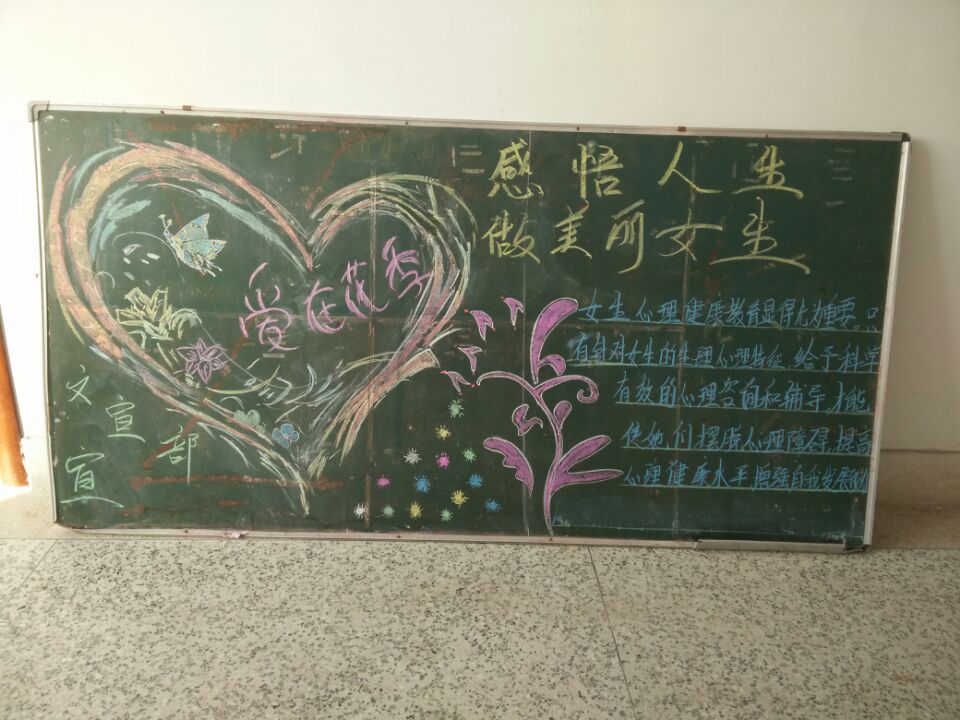 感悟人生
做美丽女生
爱在花季
女生心理健康教育显得尤为重要。只
有针对女生的生理心理特征,给予科学
有效的心理咨询和辅导,才能
使她们摆脱心理障碍,提高
心理健康水平,增强自我发展
文宣部
宣